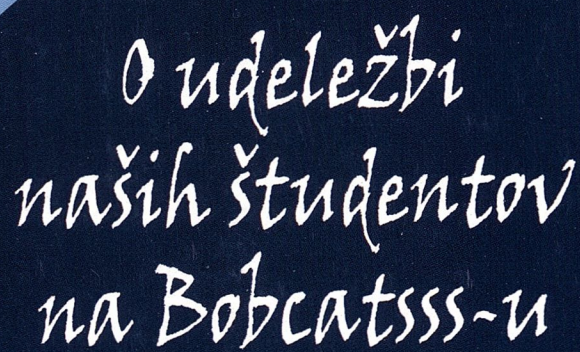 O udeležbi
naših študentov
na Bobcatsss-u